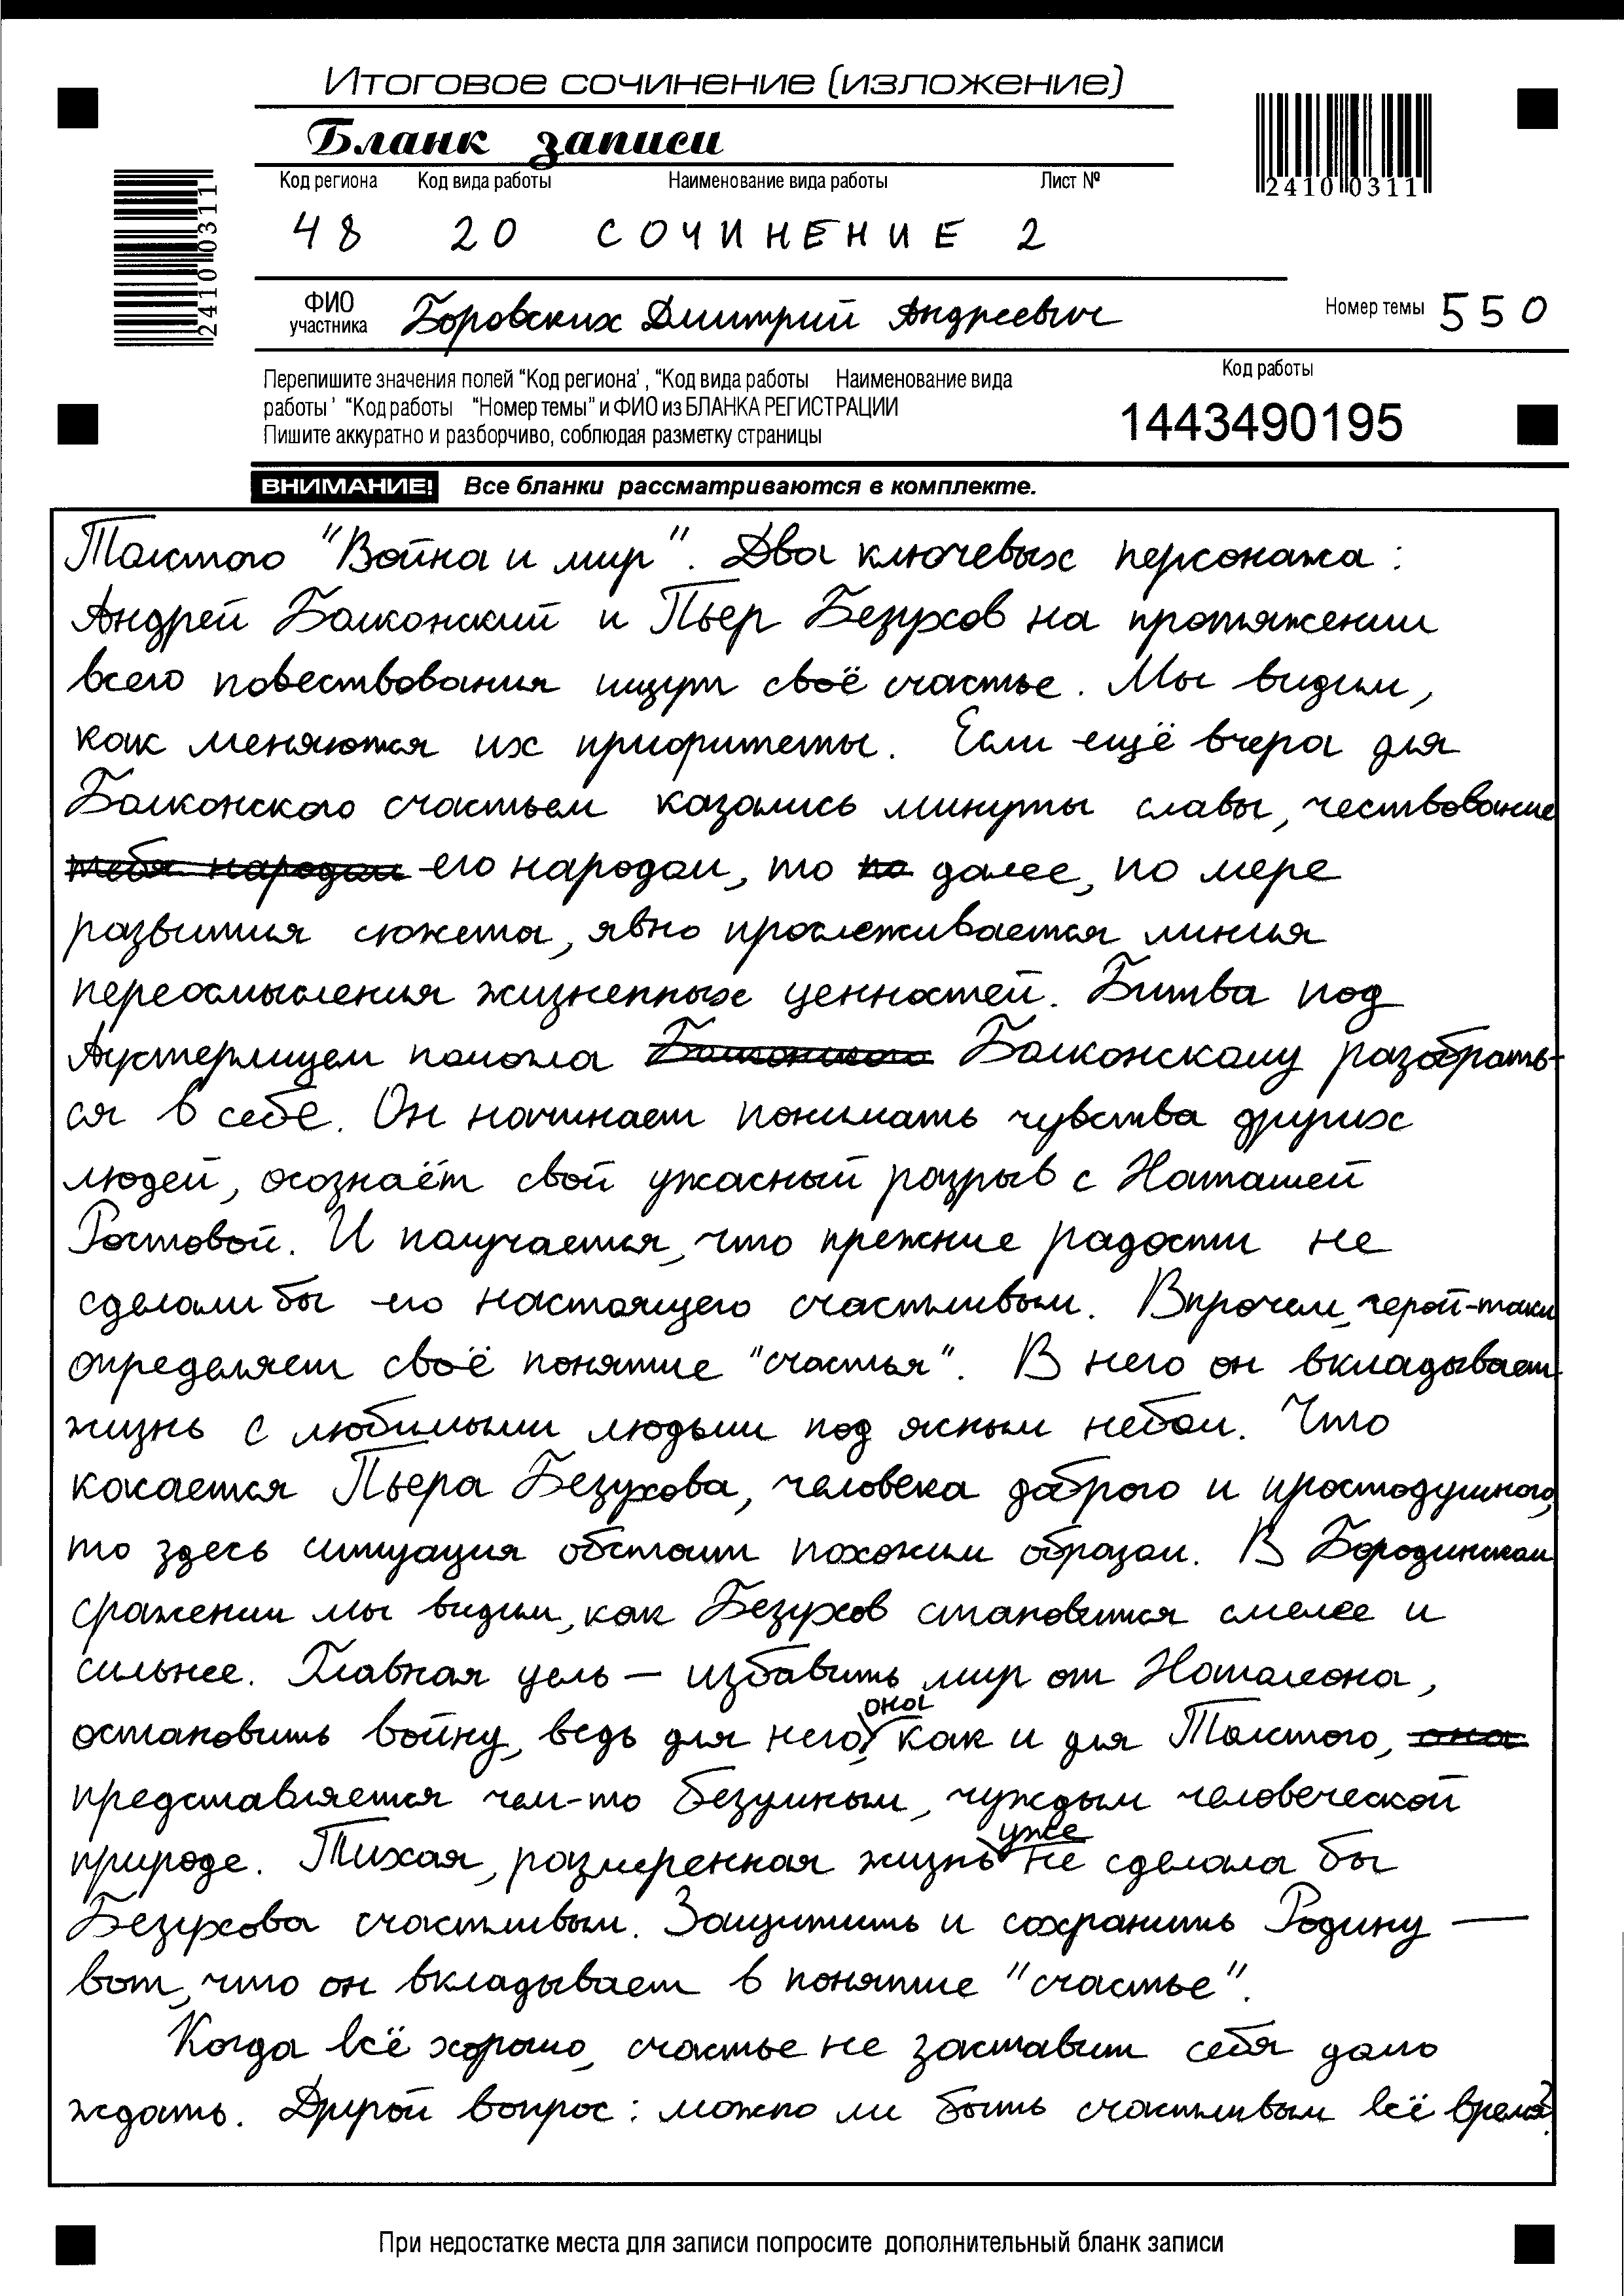 Итоговое сочинение (изложение)
Бланк записи
Код региона Код вида работы Наименование вида работы Лист №
48 20 СОЧИНЕНИЕ 2
2410 0311
2410 0311
ФИО участника Боровских Дмитрий Андреевич Номер темы 550
Перепишите значения полей "Код региона', "Код вида работы Наименование вида
работы' "Код работы "Номер темы" и ФИО из БЛАНКА РЕГИСТРАЦИИ
Пишите аккуратно и разборчиво, соблюдая разметку страницы
Код работы
1443490195
ВНИМАНИЕ! Все бланки рассматриваются в комплекте.
Толстого "Война и мир". Два ключевых персонажа:
Андрей Болконский и Пьер Безухов на протяжении
всего повествования ищут своё счастье. Мы видим,
как меняются их приоритеты. Если ещё вчера для
Болконского счастьем казались минуты славы, чествование
тебя народом его народом, то по далее, по мере
развития сюжета, явно прослеживается линия
переосмысления жизненных ценностей. Битва под
Аустерлицем помогла Болконского Болконскому разобрать-
ся в себе. Он начинает понимать чувства других
людей, осознаёт свой ужасный разрыв с Наташей
Ростовой. И получается, что прежние радости не
сделали бы его настоящего счастливым. Впрочем, герой-таки
определяет своё понятие "счастья". В него он вкладывает
жизнь с любимыми людьми под ясным небом. Что
касается Пьера Безухова, человека доброго и простодушного,
то здесь ситуация обстоит похожим образом. В Бородинском
сражении мы видим, как Безухов становится смелее и
сильнее. Главная цель — избавить мир от Наполеона,
остановить войну, ведь для него она, как и для Толстого, она
представляется чем-то безумным, чуждым человеческой
природе. Тихая, размеренная жизнь уже не сделала бы
Безухова счастливым. Защитить и сохранить Родину —
вот, что он вкладывает в понятие "счастье".
Когда всё хорошо, счастье не заставит себя долго
ждать. Другой вопрос: можно ли быть счастливым всё время?
При недостатке места для записи попросите дополнительный бланк записи